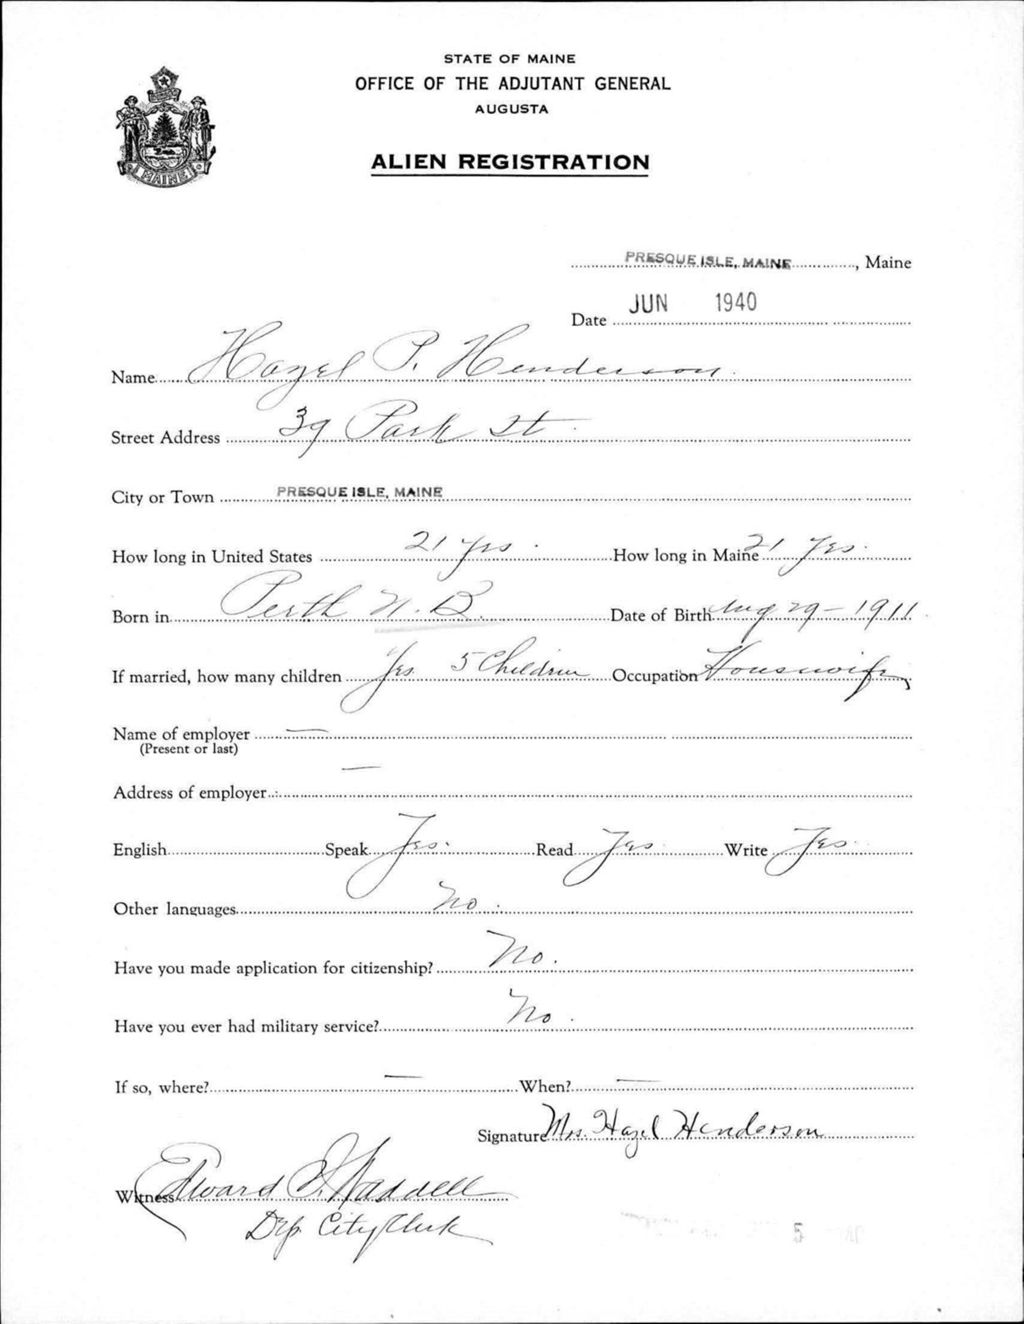 STATE OF MAINE
OFFICE OF THE ADJUTANT GENERAL
AUGUSTA
ALIEN REGISTRATION
MAINE
PRESQUE ISLE, MAINE, Maine
JUN 1940
Date
Name Hazel P. Henderson
Street Address 39 Park St.
City or Town PRESQUE ISLE, MAINE
How long in United States 21 Yrs. How long in Maine 21 Yrs.
Born in Perth N.B. Date of Birth Aug 29-1911
If married, how many children Yes 5 Children Occupation Housewife
Name of employer —
(Present or last)
Address of employer —
English Speak Yes. Read Yes Write Yes
Other languages No.
Have you made application for citizenship? No.
Have you ever had military service? No.
If so, where? — When? —
Signature Mrs. Hazel Henderson
Witness Edward J. Waddell
Dep City Clerk
5